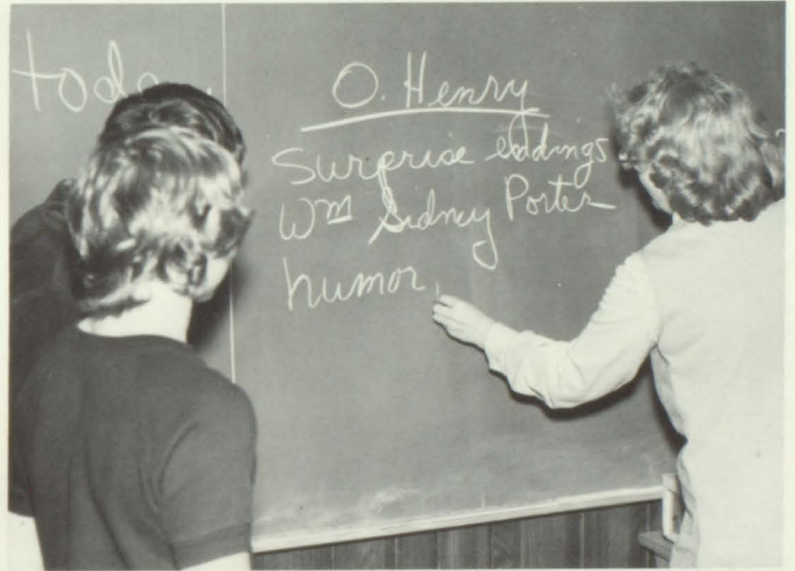 O. Henry
Surprise endings
Wm Sidney Porter
humor,